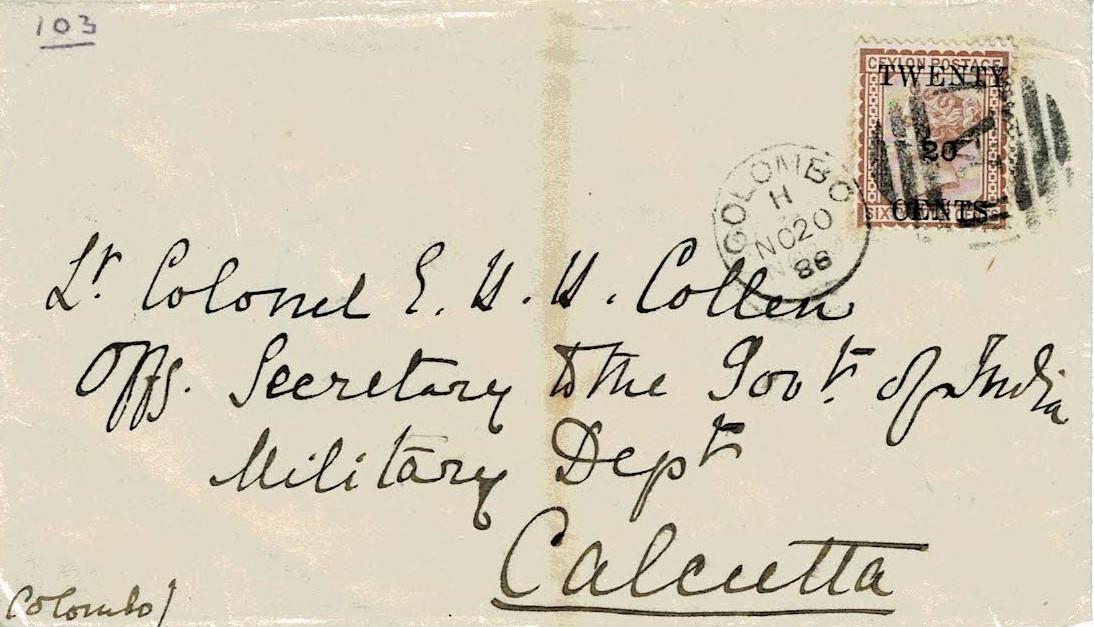 103
CEYLON POSTAGE
TWENTY
20
CENTS
COLOMBO
H
NO 20
86
Lt. Colonel E. H. H. Collen
Offg. Secretary to the Govt. of India
Military Dept
Calcutta
Colombo